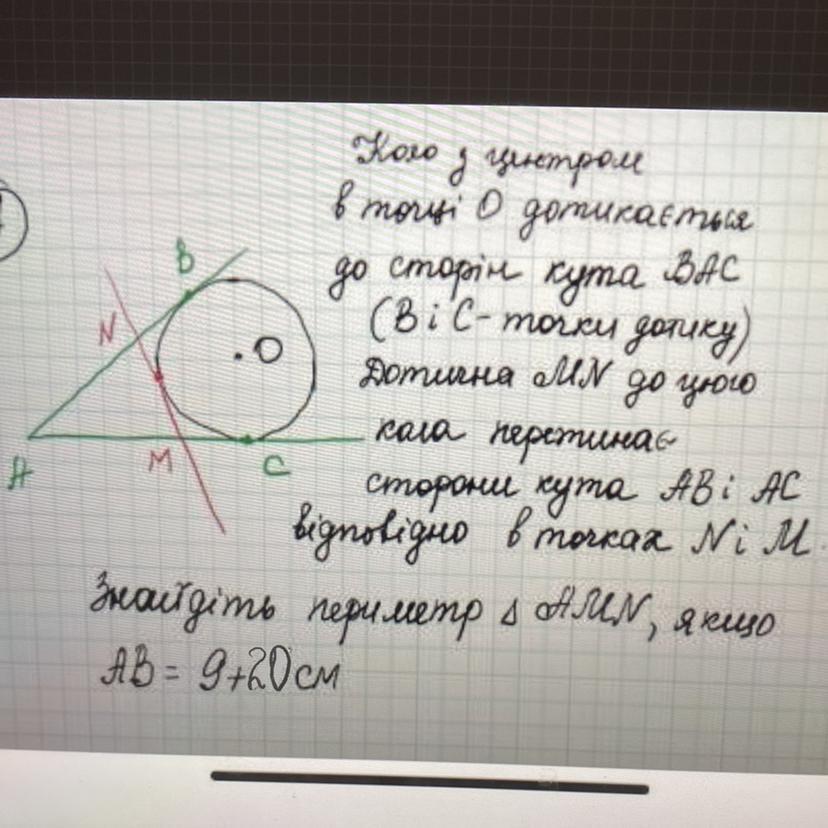 Коло з центром
в точці О дотикається
до сторін кута ВАС
(В і С - точки дотику)
Дотична MN до цього
кола перетинає
сторони кута АВ і АС
відповідно в точках N і M.
В
N
О
А
M
С
Знайдіть периметр Δ AMN, якщо
АВ = 9+20 см